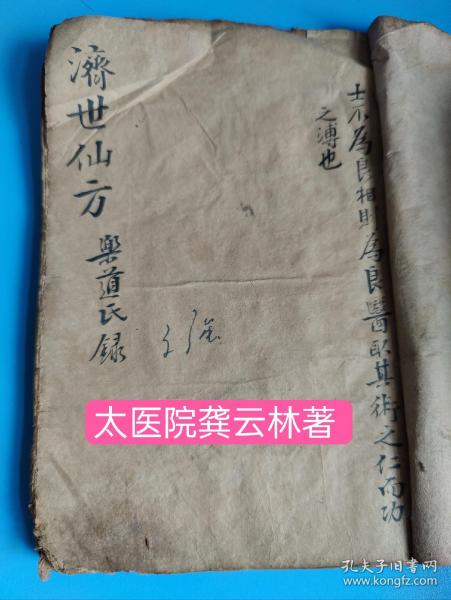 士不為良相則為良醫取其術之仁而功
之溥也
濟世仙方
樂道氏録
太医院龚云林著
孔夫子旧书网
www.kongfz.com